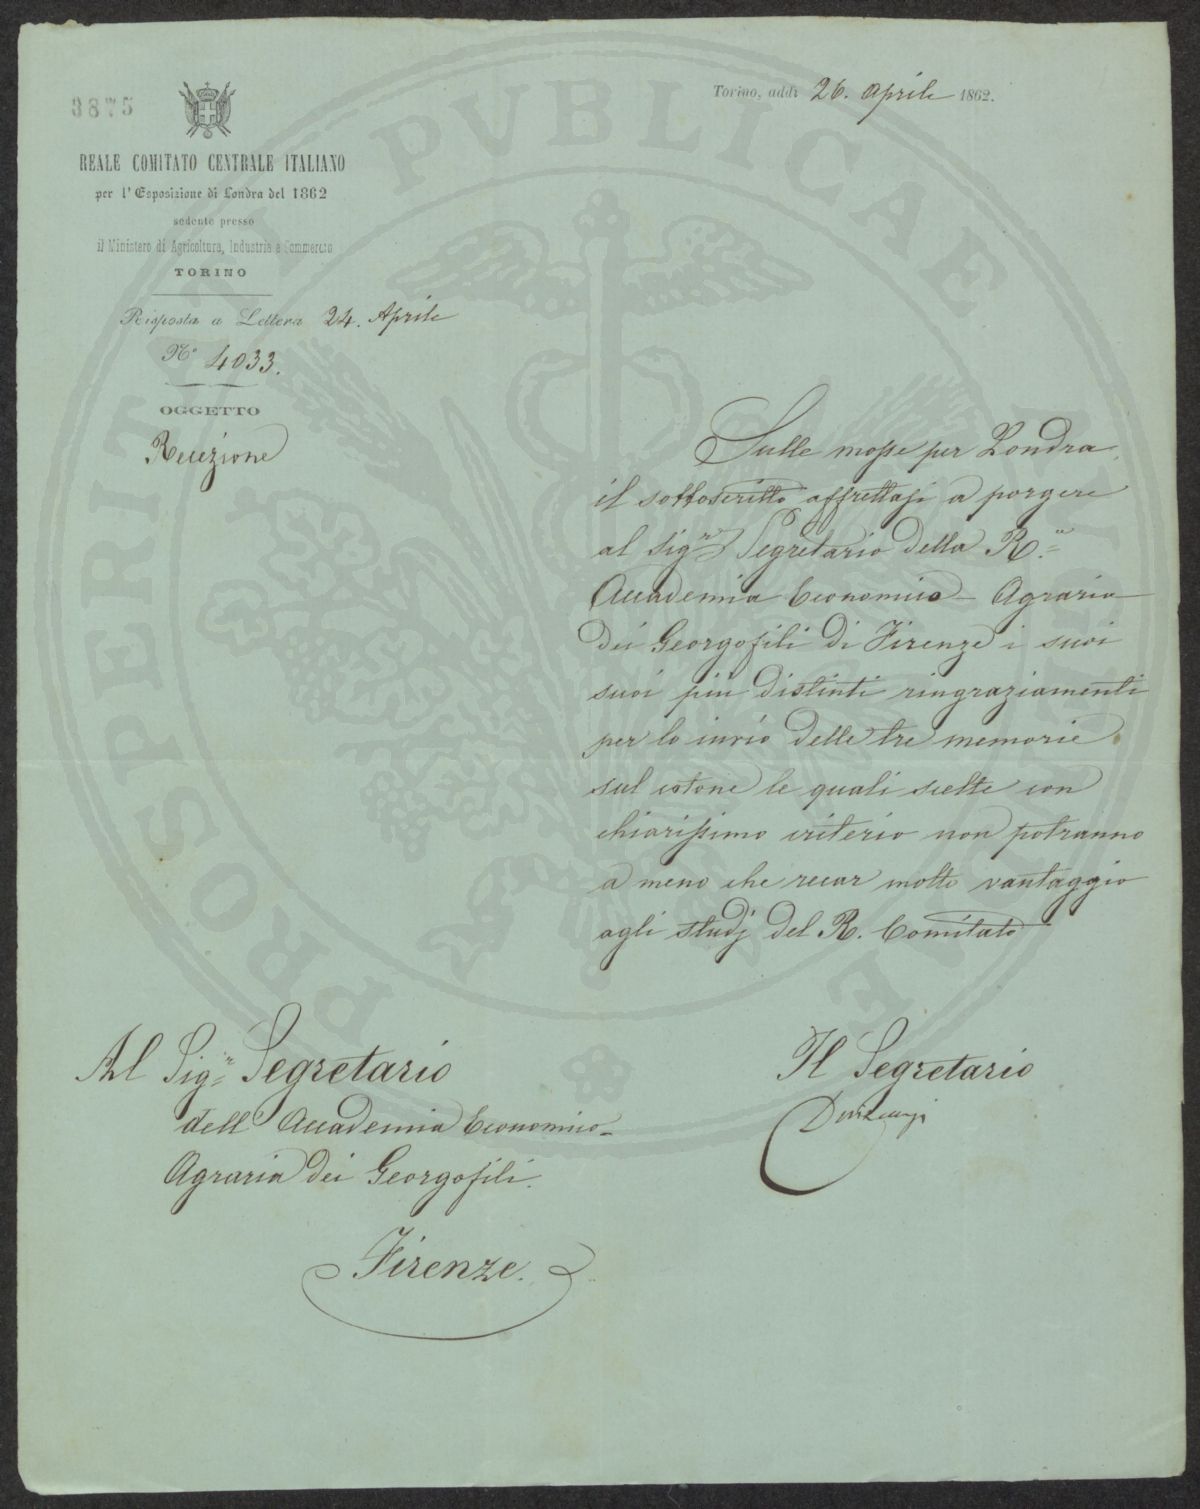 3875
Torino, addì 26. Aprile 1862.
REALE COMITATO CENTRALE ITALIANO
per l'Esposizione di Londra del 1862
sedente presso
il Ministero di Agricoltura, Industria e Commercio
TORINO
Risposta a Lettera 24. Aprile
N° 4033.
OGGETTO
Recezione
Sulle mosse per Londra,
il sottoscritto affrettasi a porgere
al Sigr Segretario della R.a
Accademia Economico-Agraria
dei Georgofili di Firenze i suoi
suoi più distinti ringraziamenti
per lo invio delle tre memorie
sul cotone le quali scelte con
chiarissimo criterio non potranno
a meno che recar molto vantaggio
agli studj del R. Comitato
Al Sigr Segretario
dell'Accademia Economico-
Agraria dei Georgofili.
Firenze.
Il Segretario
PROSPERITATI PVBLICAE AVGENDAE